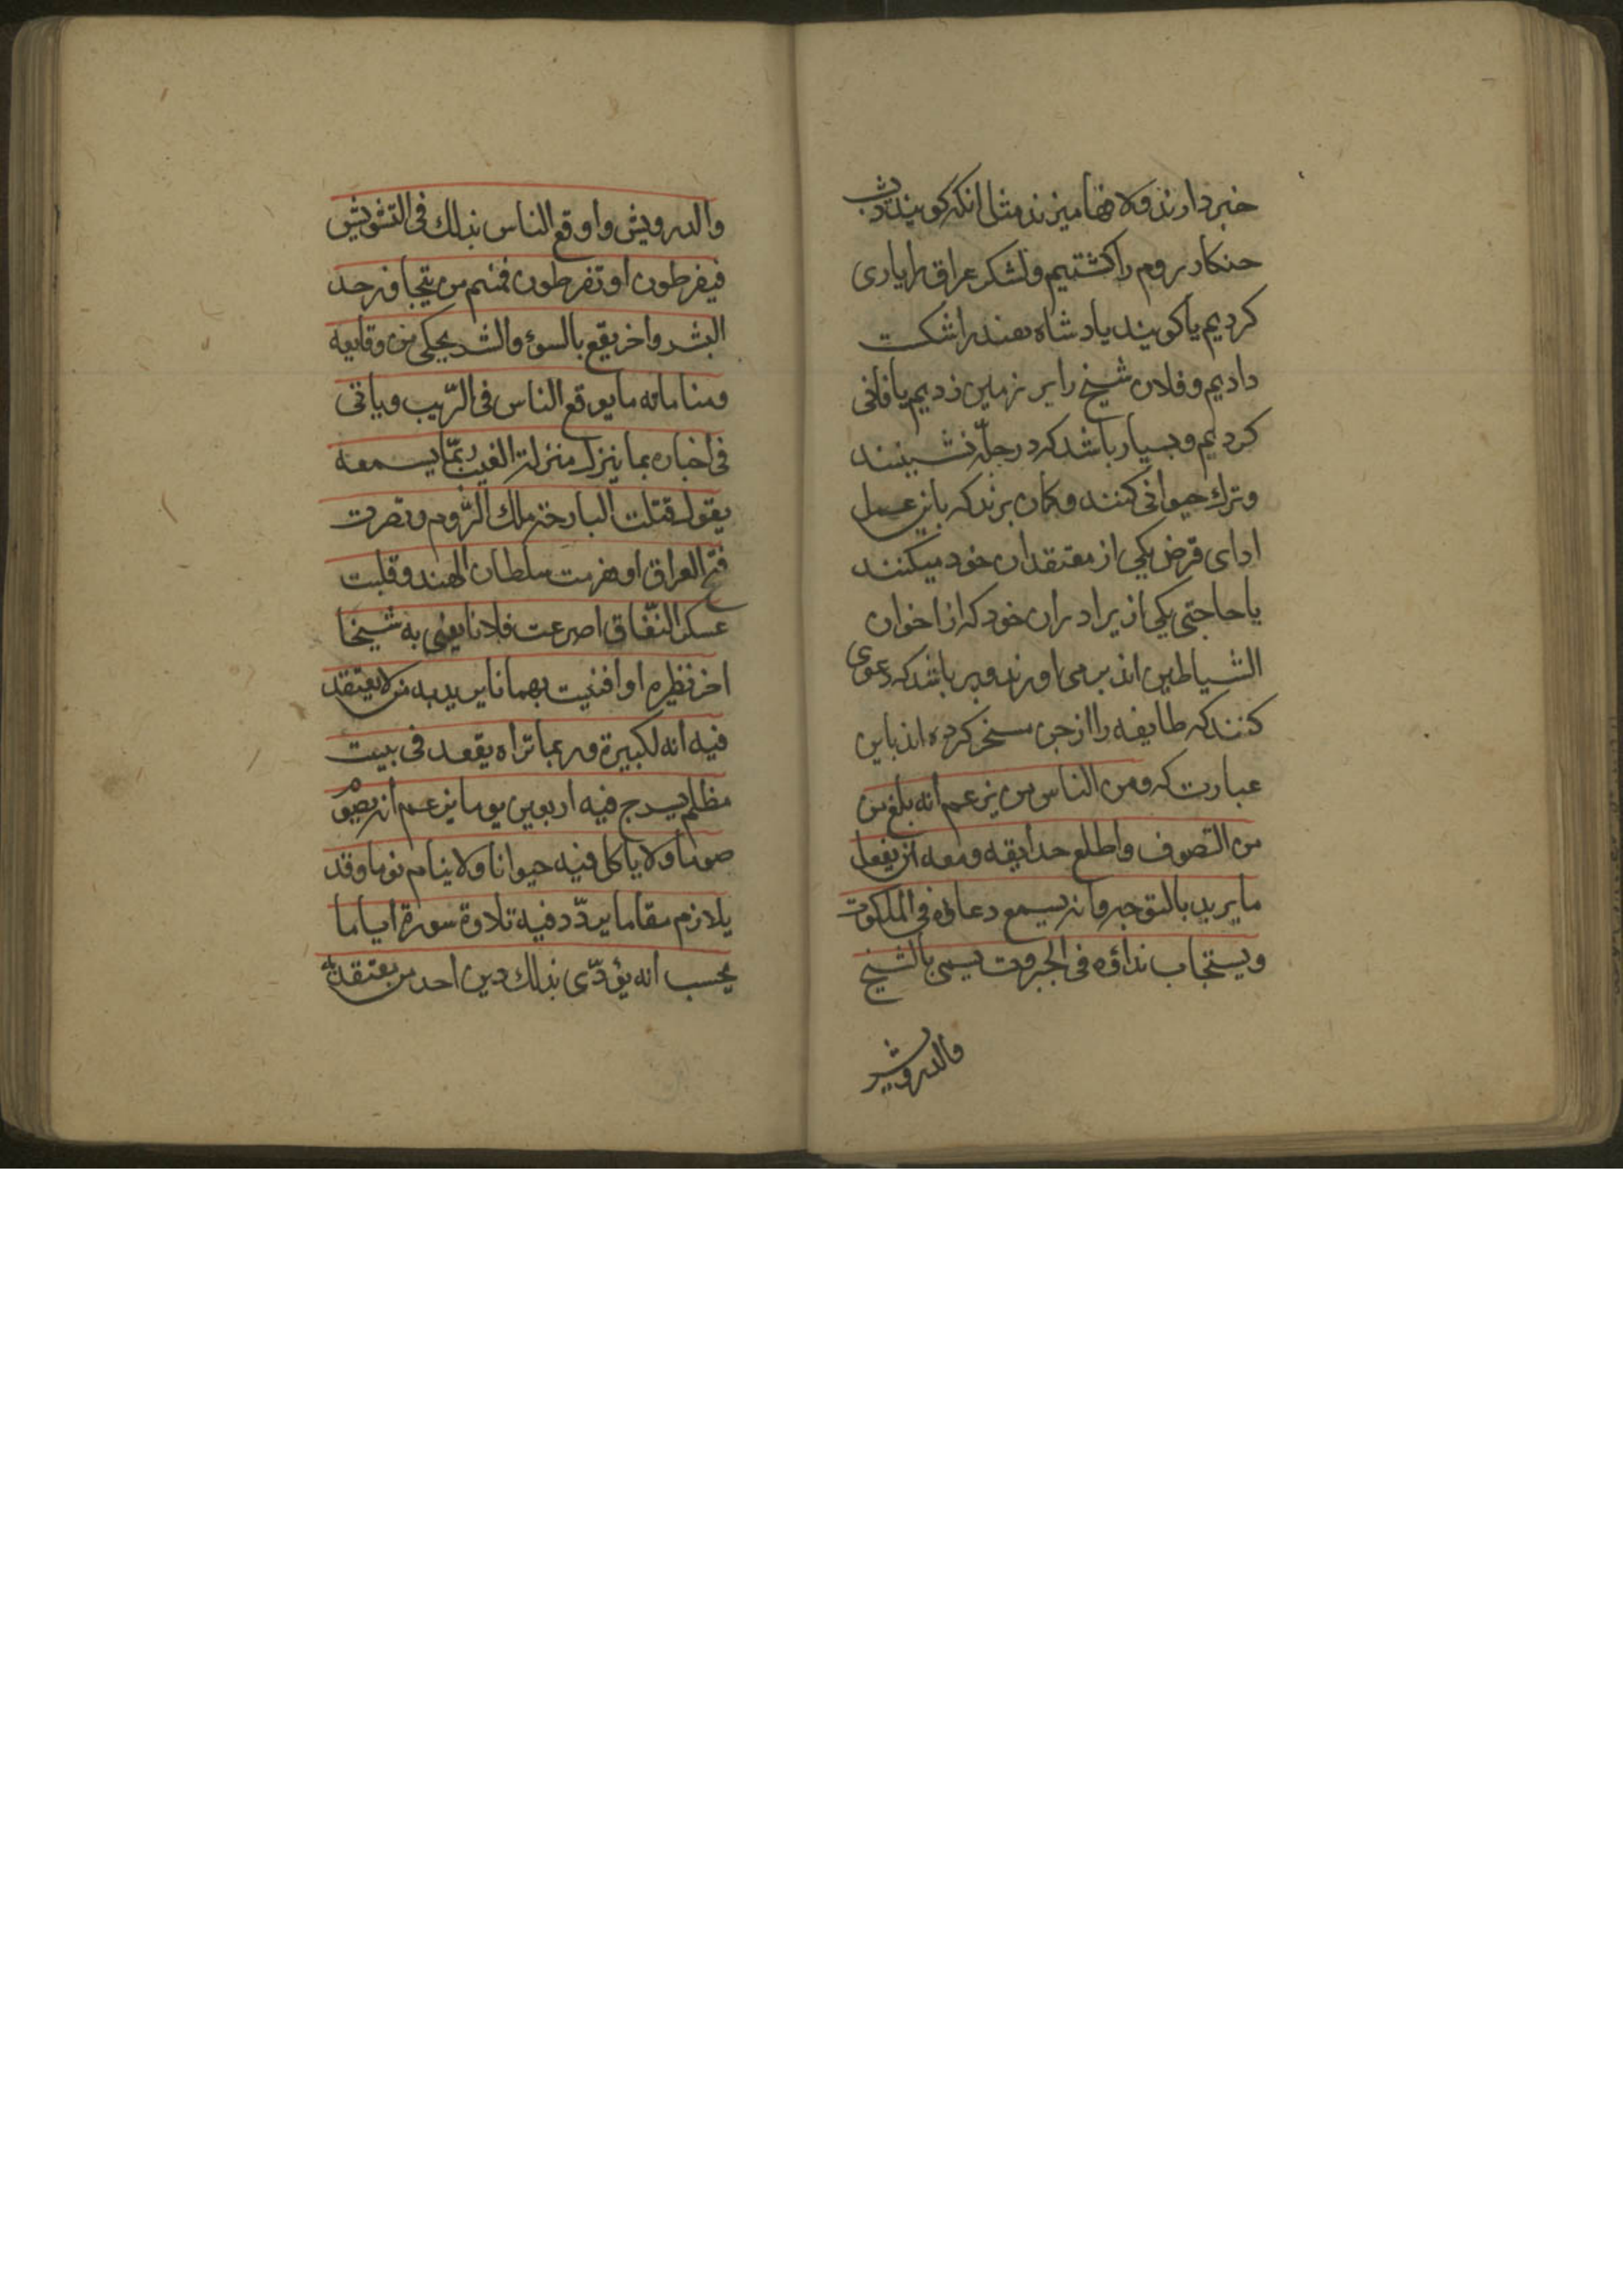 خبر دارند و لافها میزند مثل انکه کویند دیشب
حنکار روم را کشتیم و لشکر عراق را یاری
کردیم یا کویند پادشاه هند را شکست
دادیم و فلان شیخ را بر زمین زدیم یا فانی
کردیم و بسیار باشد که در چله نشینند
و ترک حیوانی کنند و کمان برند که باین عمل
ادای قرض یکی از معتقدان خود میکنند
یا حاجتی یکی از برادران خود که از اخوان
الشیاطین اند بر می اورند و بر باشد که دعوی
کنند که طایفه را از جن مسخر کرده اند باین
عبارت که ومن الناس من یزعم أنه بلغ من
من التصوف واطلع حدایقه ومعه ان یفعل
ما یرید بالتوجه وانه یسمع دعاؤه فی الملکوت
ویستجاب نداؤه فی الجبروت یسمی بالشیخ
والدرویش
والدرویش واوقع الناس بذلک فی التشویش
فیفرطون او تفرطون فمنهم من یتجاوز حد
البشر واخر یقع بالسوء والشر یحکی من وقایعه
ومناماته ما یوقع الناس فی الرّیب ویاتی
فی اخباره بما ینزل منزلة الغیب ربّما یسمعه
یقول قتلت البارحة ملک الرّوم ونصرت
فتح العراق او هزمت سلطان الهند وقلبت
عسکر النّفاق اصرعت فلانا یعنی به شیخا
اخر نظیره او افنیت بهمانا یرید به من لا یعتقد
فیه أنه لکبیرة وربما تراه یقعد فی بیت
مظلم یسرج فیه اربعین یوما یزعم أنه یصوم
صوما ولا یاکل فیه حیوانا ولا ینام نوما وقد
یلازم مقاما یردّد فیه تلاوة سورة ایاما
یحسب أنه یؤدّی بذلک دین احد من معتقدیه